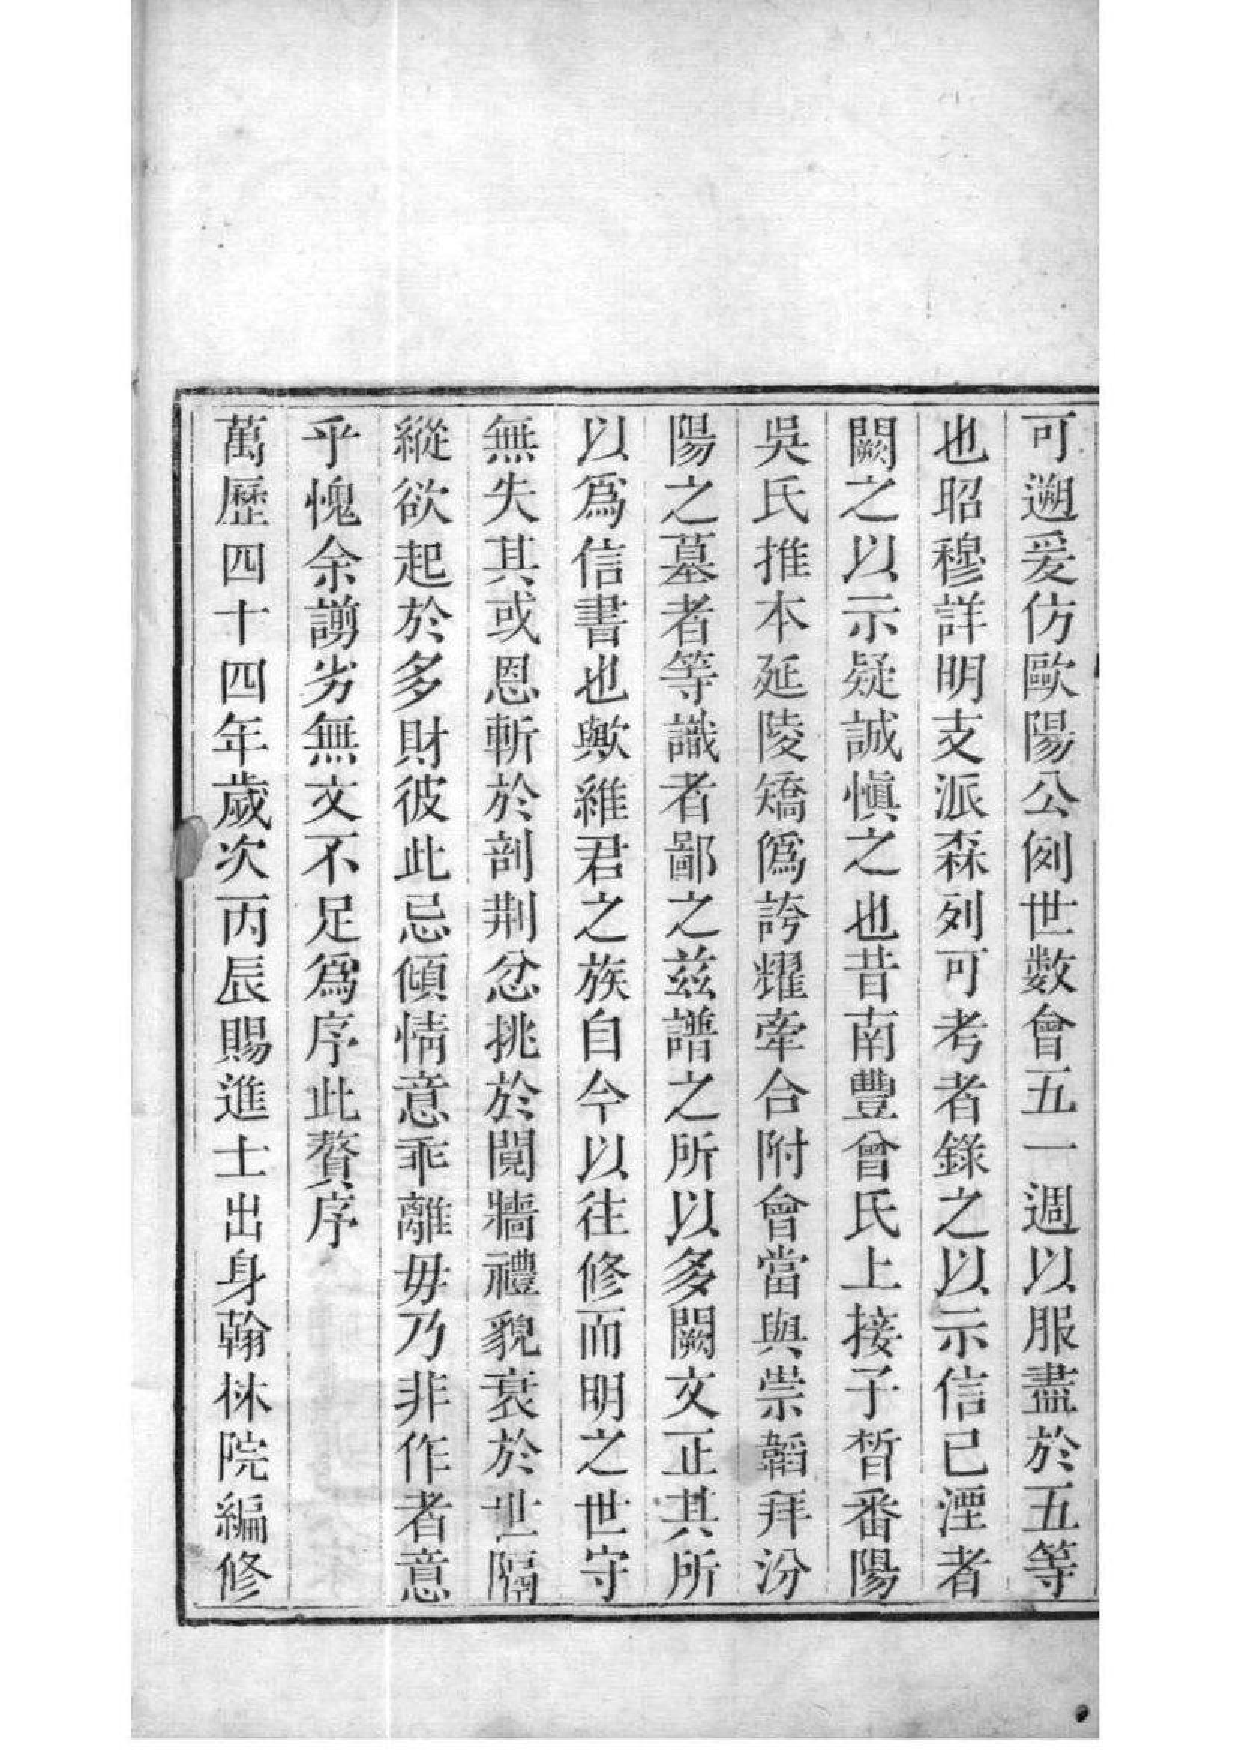 可遡爰仿歐陽公例世數會五一週以服盡於五等
也昭穆詳明支派森列可考者錄之以示信已湮者
闕之以示疑誠愼之也昔南豐曾氏上接子晳番陽
吳氏推本延陵矯僞誇耀牽合附會當與崇韜拜汾
陽之墓者等識者鄙之兹譜之所以多闕文正其所
以爲信書也歟維君之族自今以往修而明之世守
無失其或恩斬於剖荆忿挑於鬩牆禮貌衰於世隔
縱欲起於多財彼此忌傾情意乖離毋乃非作者意
乎愧余謭劣無文不足爲序此贅序
萬歷四十四年歲次丙辰賜進士出身翰林院編修